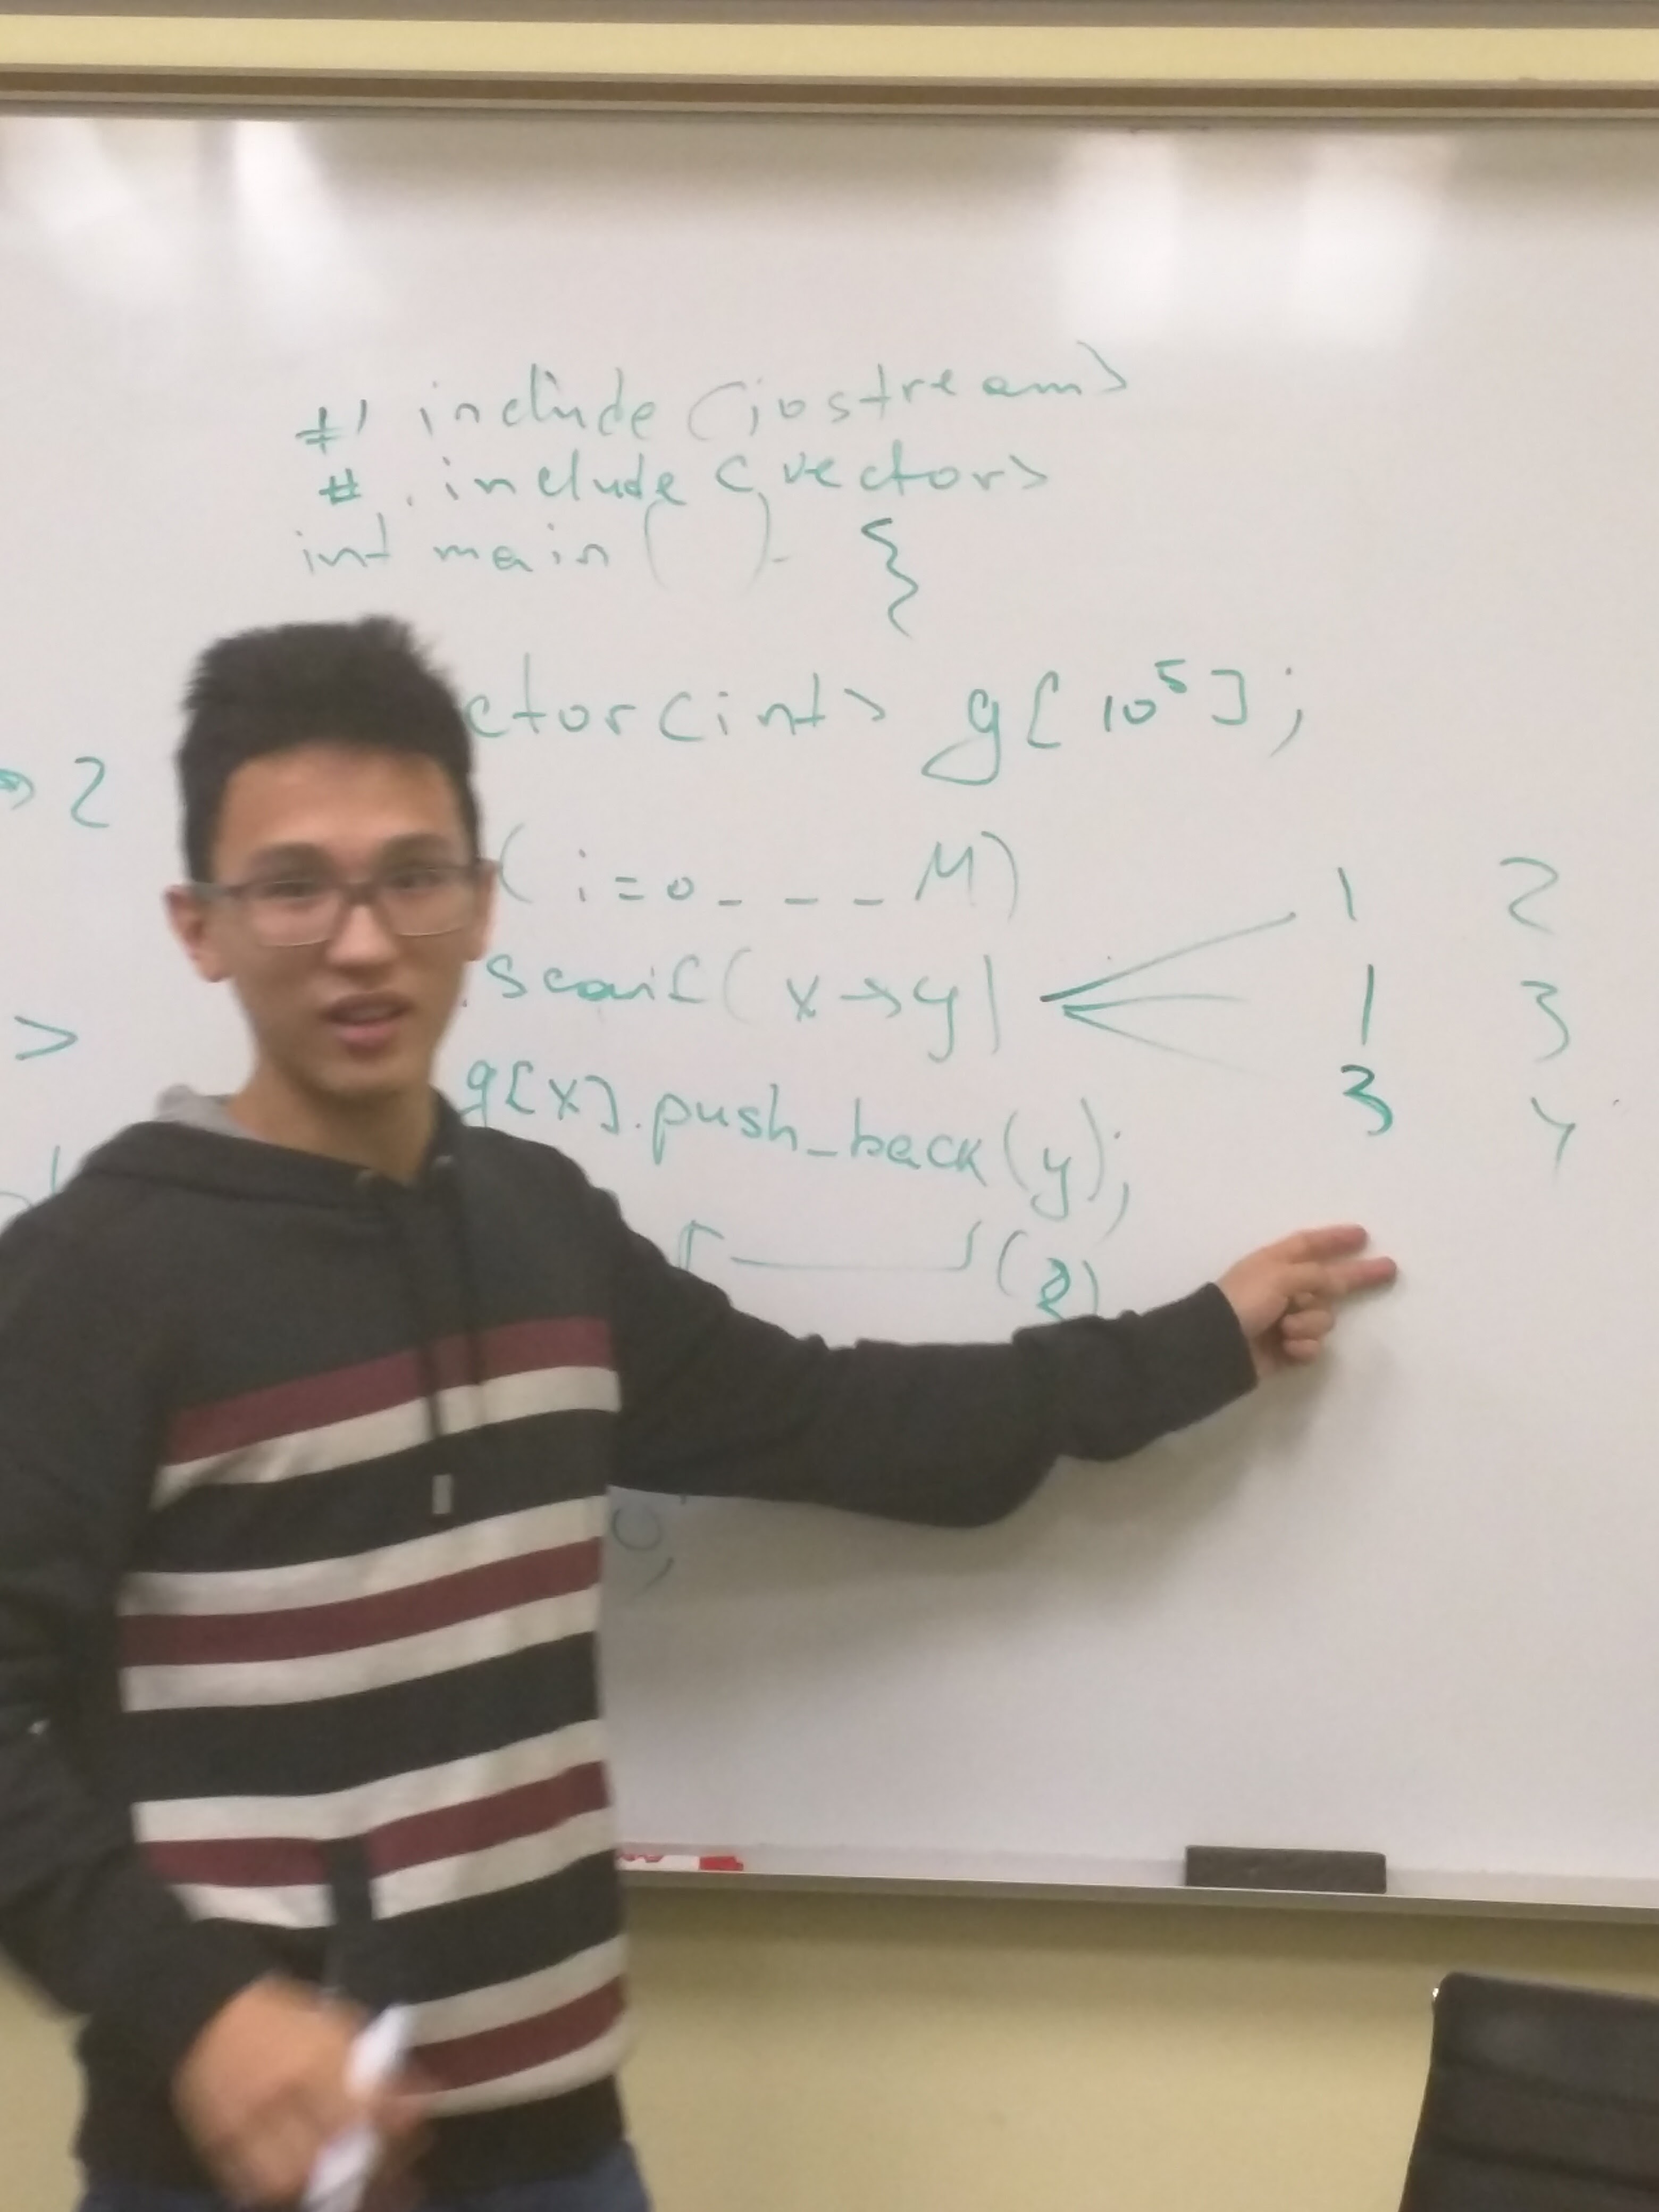 # include <iostream>
# include <vector>
int main ( ) {
ctor<int> g[10⁵];
2
( i=0 _ _ _ M) 1 2
scanf( x→y) 1 3
>
g[x].push_back(y); 3 4
(2)
0;